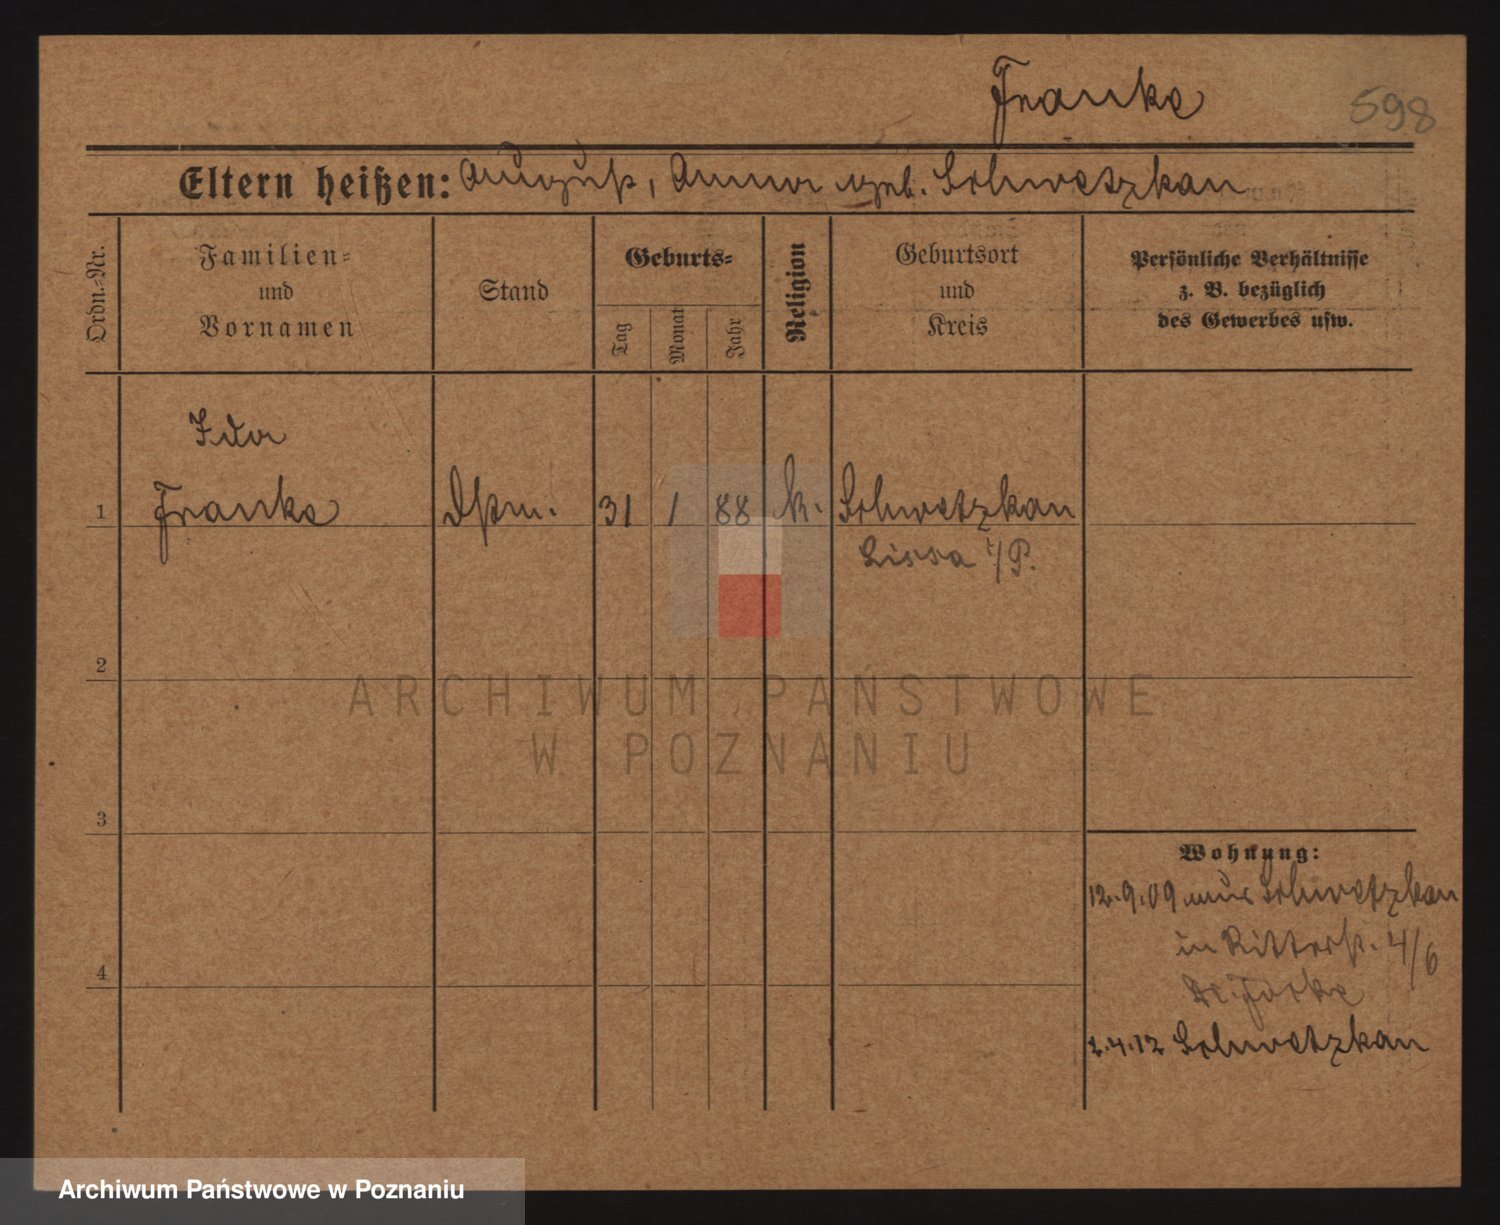 Franke
598
Eltern heißen: August, Anna geb. Schwetzkau
Ordn.-Nr.
Familien-
und
Vornamen
Stand
Geburts-
Tag
Monat
Jahr
Religion
Geburtsort
und
Kreis
Persönliche Verhältnisse
z. B. bezüglich
des Gewerbes usw.
Ida
1 Franke Dstm. 31 1 88 k. Schwetzkau
Lissa i/P.
2
ARCHIWUM PAŃSTWOWE
W POZNANIU
3
Wohnung:
12.9.09 aus Schwetzkau
in Ritterst. 4/6
4
2.4.12 Schwetzkau
Archiwum Państwowe w Poznaniu